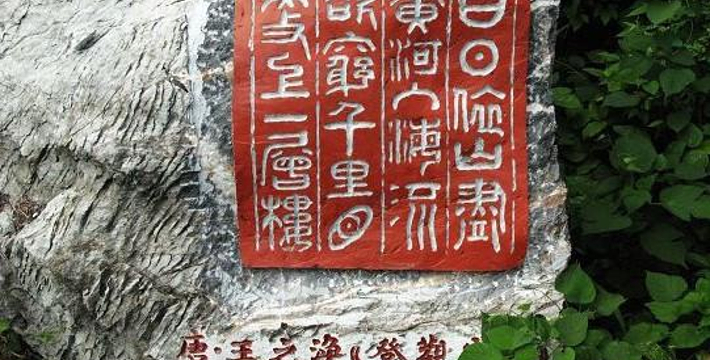 白日依山盡
黃河入海流
欲窮千里目
更上一層樓
唐·王之渙《登鸛